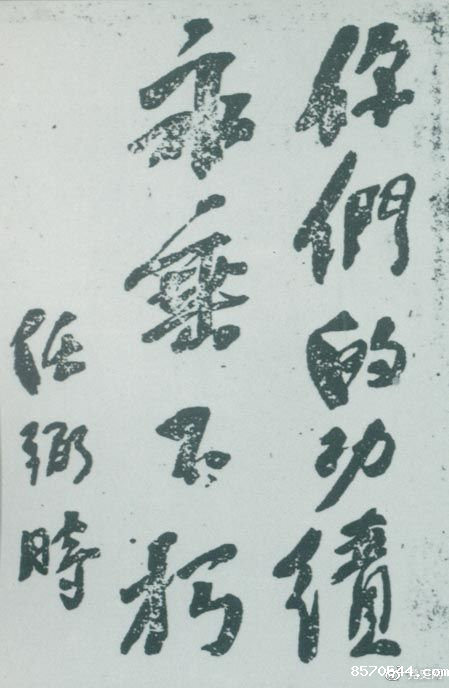 你們的功績
永垂不朽
任弼時
8570544.com